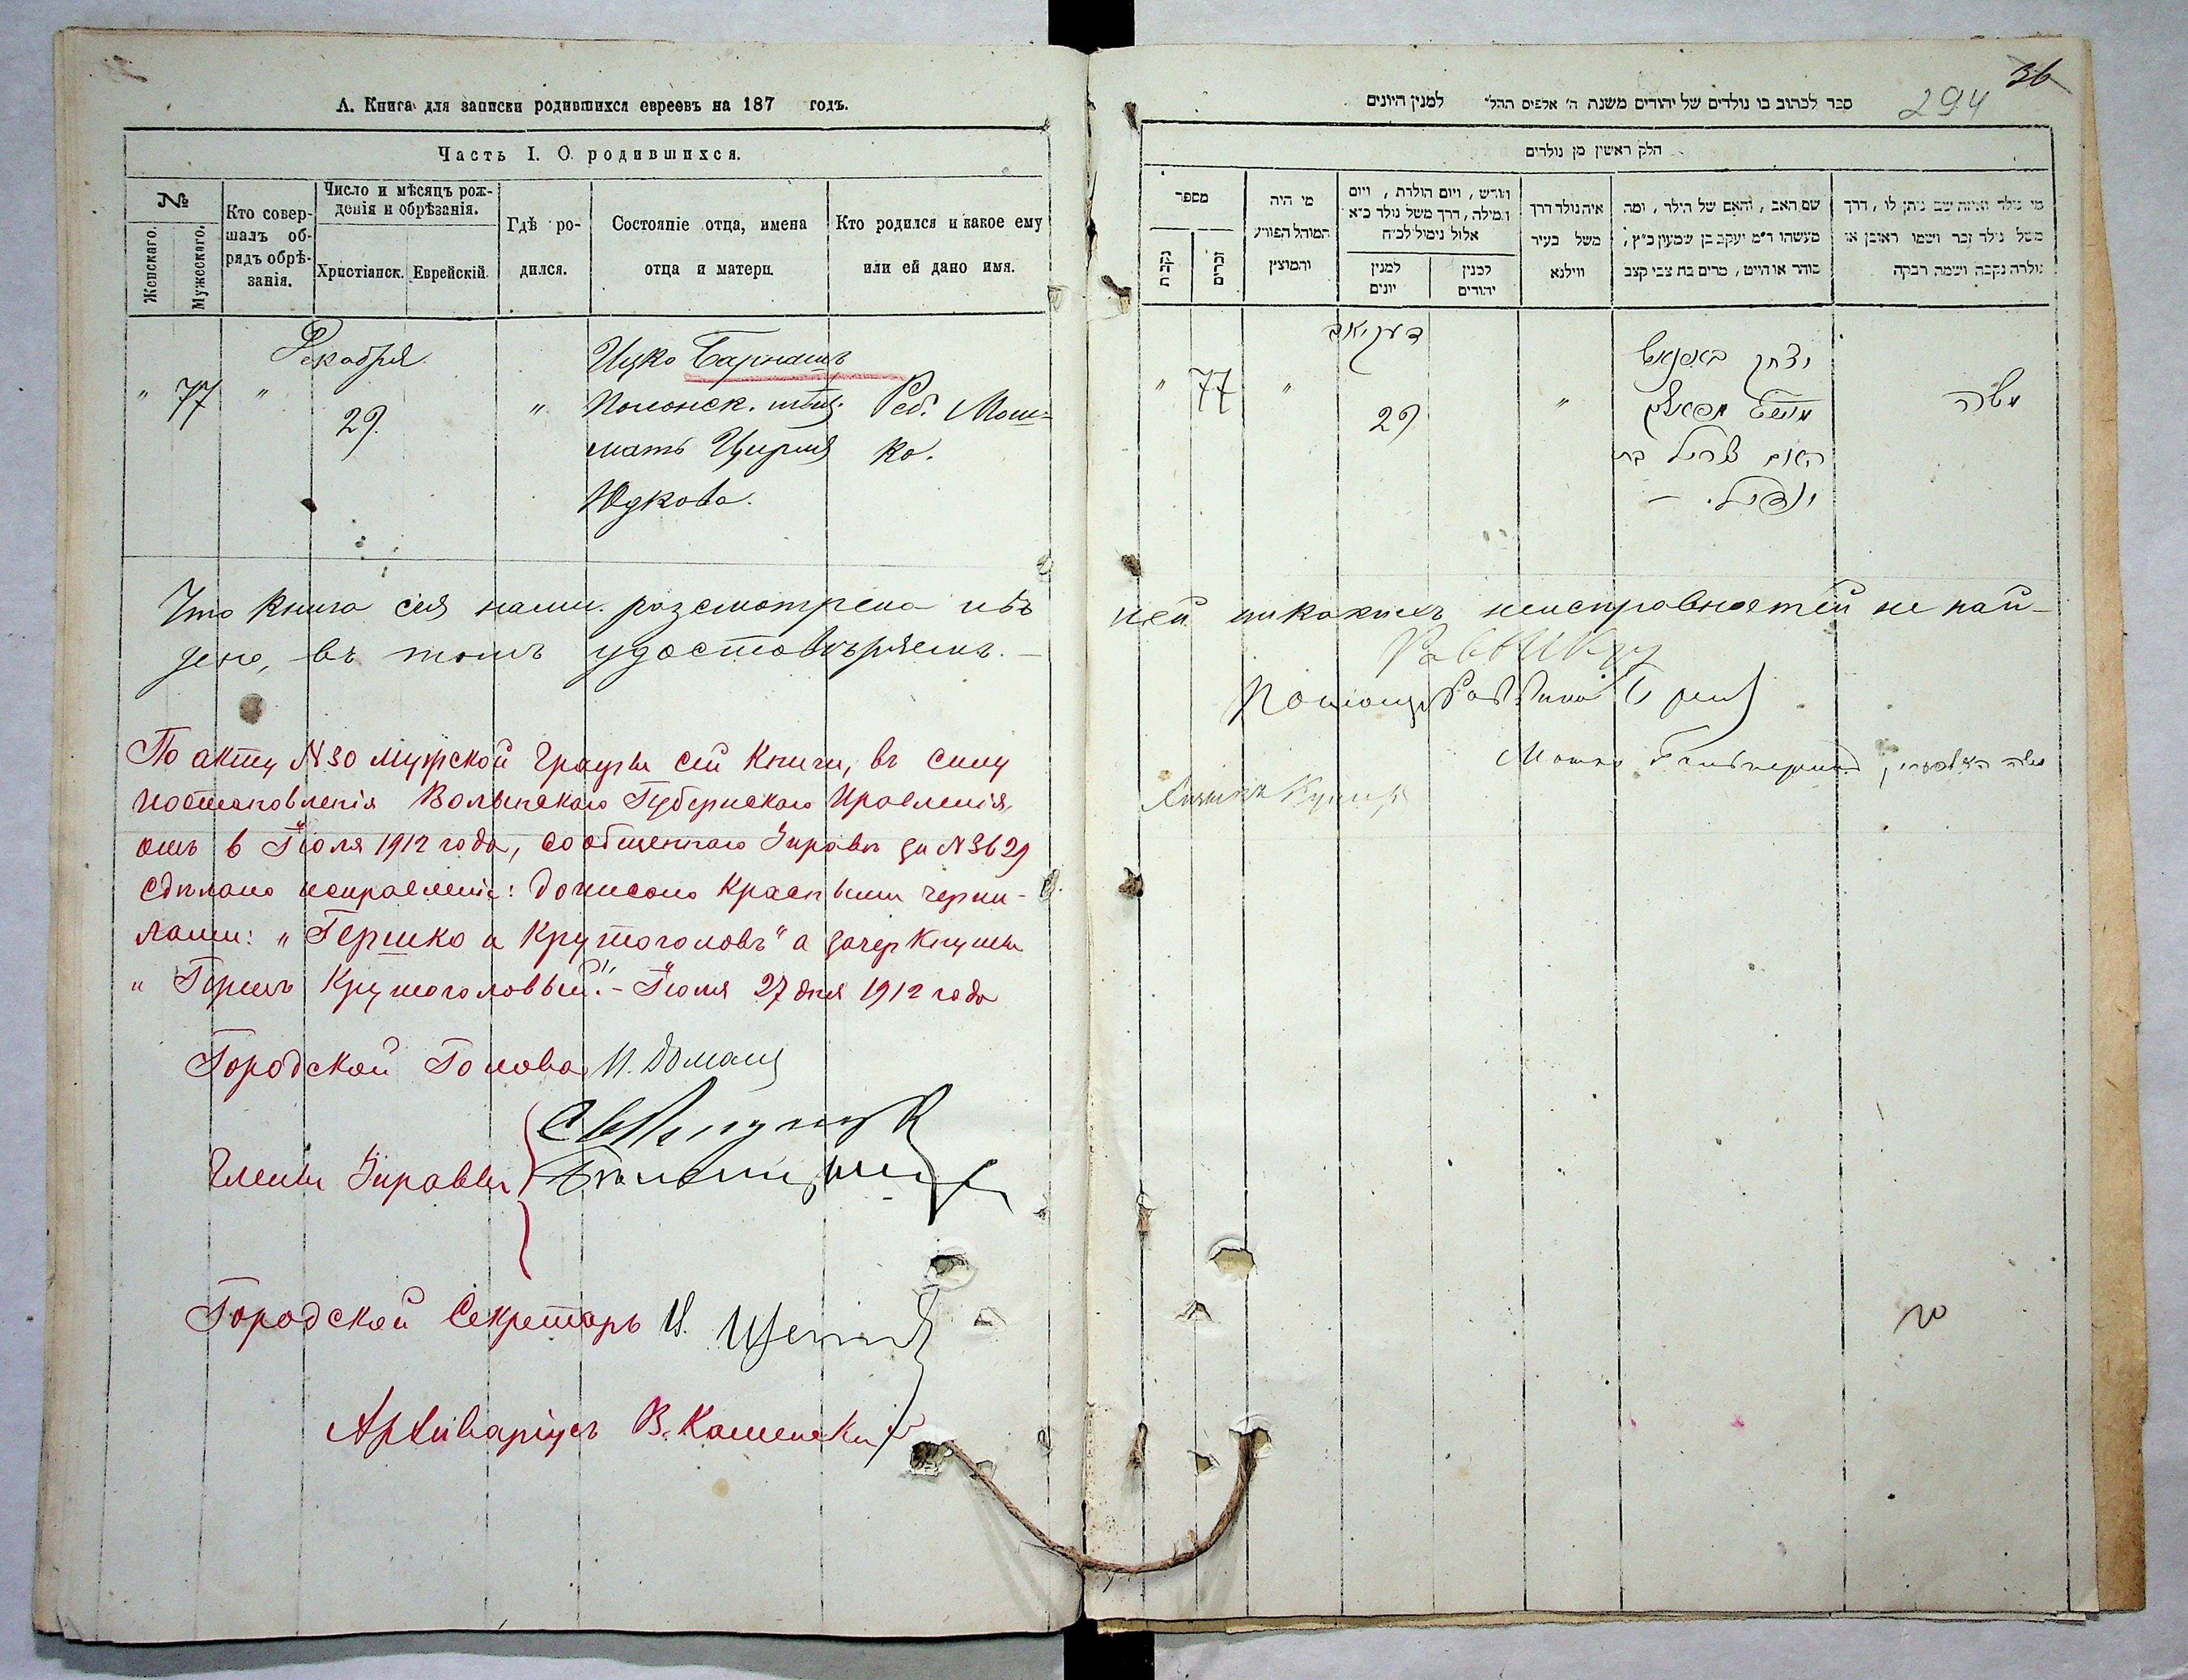 А. Книга для записки родившихся евреевъ на 187 годъ.
Часть I. О родившихся.
№
Женскаго.
Мужескаго.
Кто совер-
шалъ об-
рядъ обрѣ-
занія.
Число и мѣсяцъ рож-
денія и обрѣзанія.
Христіанск.
Еврейскій.
Гдѣ ро-
дился.
Состояніе отца, имена
отца и матери.
Кто родился и какое ему
или ей дано имя.
Декабря
" 77 " 29. "
Ицко Барнашъ
Полонск. мѣщ.
мать Цирля
Юдкова.
Реб. Мош-
ко.
Что книга сія нами разсмотрена и въ
дено, въ томъ удостовѣряемъ. —
По акту N 30 мужской графы сей книги, въ силу
постановленія Волынскаго Губернскаго Правленія,
отъ 6 Іюля 1912 года, сообщеннаго Управѣ за N 3629
сдѣлано исправленіе: дописано красными черни-
лами: „Гершко и Крутоголовъ" а зачеркнуты
„Гершъ Крутоголовый". – Іюля 27 дня 1912 года
Городской Голова
Члены Управы
Городской Секретарь
Архиваріусъ В. Каменскій
36
294
ספר לכתוב בו נולדים של יהודים משנת ה' אלפים תרל" למנין היונים
חלק ראשון מן נולדים
מספר
נקבות
זכרים
מי היה
המוהל הפורע
והמוצץ
חודש, ויום הולדת, ויום
המילה, דרך משל נולד כ"א
אלול נימול לכ"ח
למנין
יונים
למנין
יהודים
איה נולד דרך
משל בעיר
ווילנא
שם האב, והאם של הילד, ומה
מעשהו ד"מ יעקב בן שמעון כ"ץ,
סוחר או חייט, מרים בת צבי קצב
מי נולד ואיזה שם ניתן לו, דרך
משל נולד זכר ושמו ראובן או
נולדה נקבה ושמה רבקה
דעקיאבר
" 77 " 29 "
יצחק בארנאש
האם צירל בת
יודקיל. –
משה
ней никакихъ неисправностей не най-
Раввинъ
Помощ. Раввина
Мошко